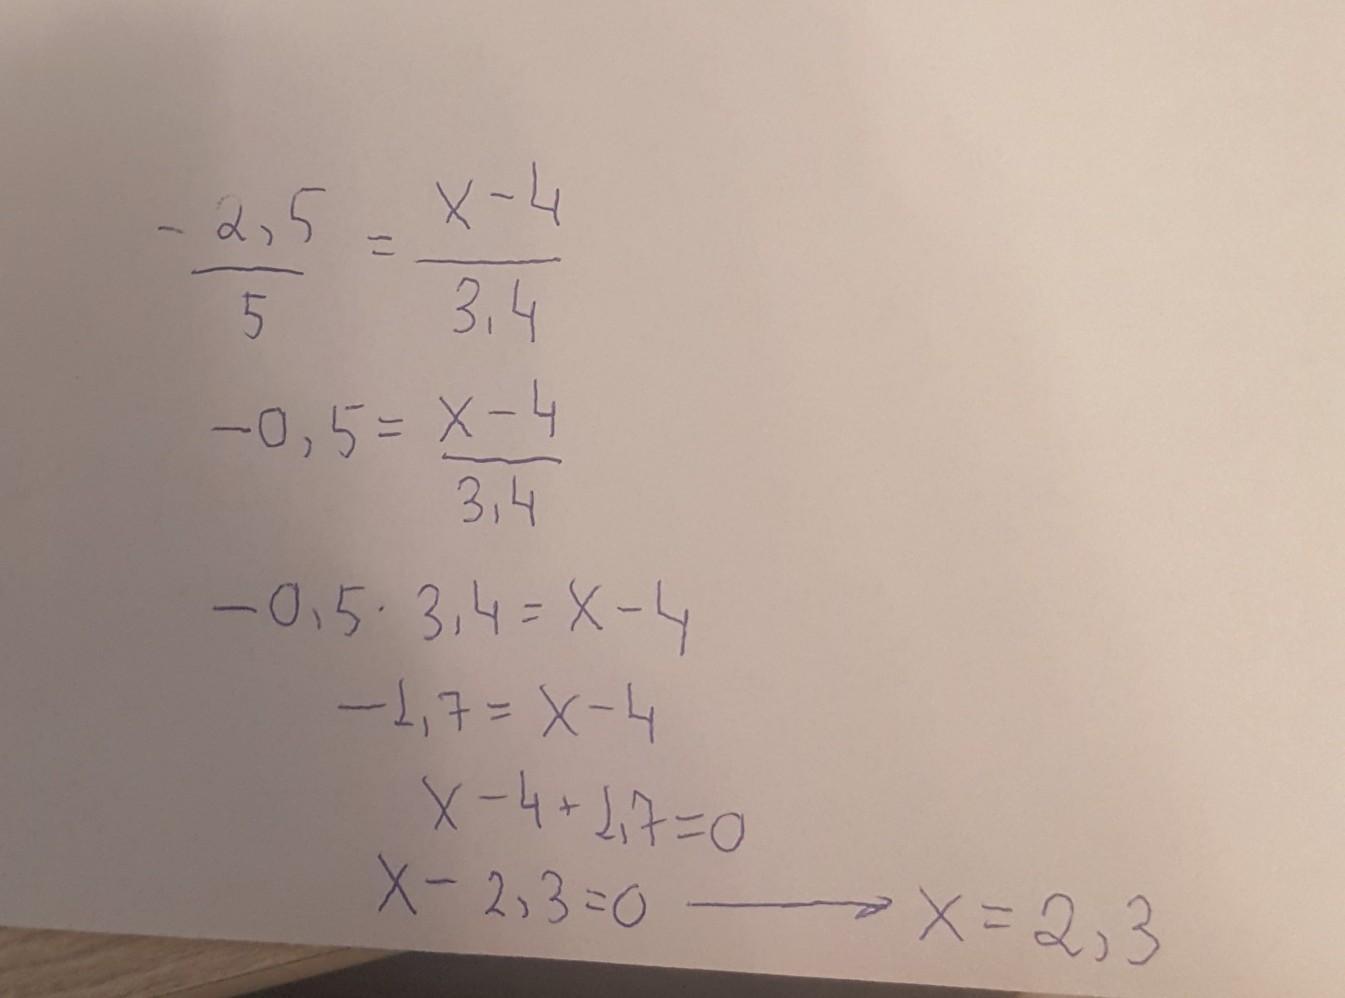 - 2,5 / 5 = x-4 / 3,4
-0,5 = x-4 / 3,4
-0,5 · 3,4 = x-4
-1,7 = x-4
x-4+1,7=0
x-2,3=0 → x=2,3